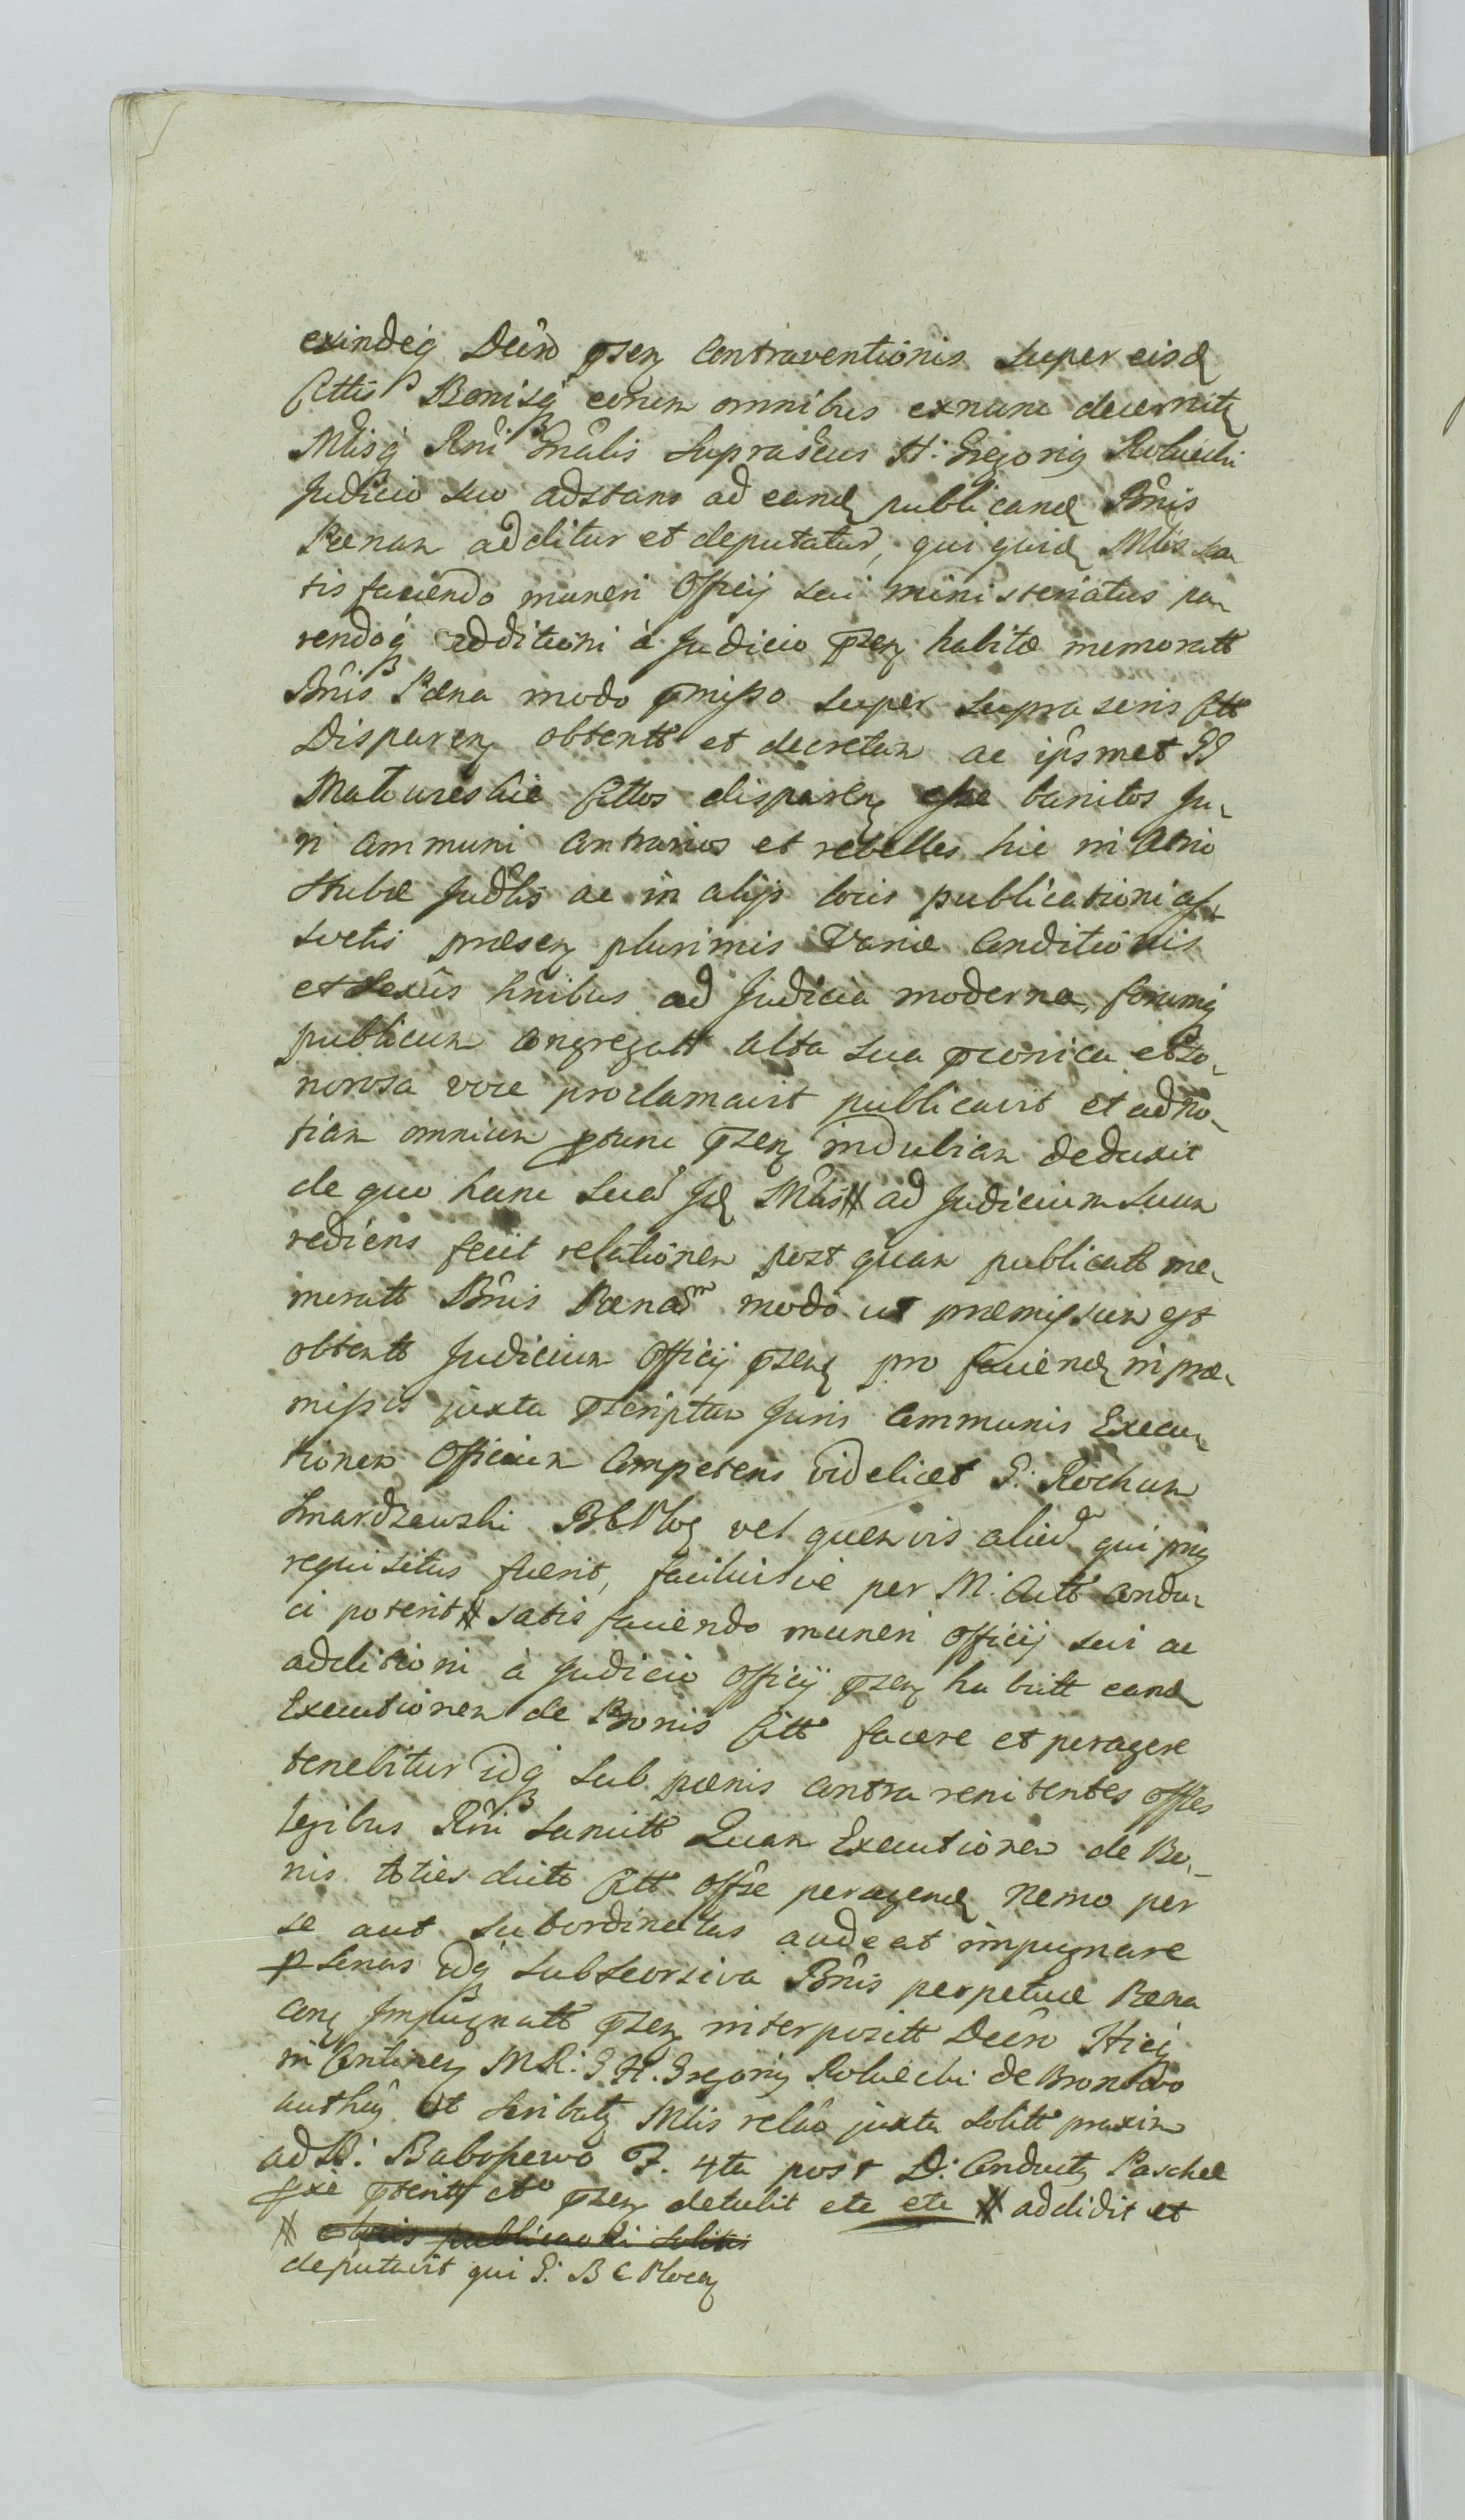 exindeq Decio psen contraventionis super eisd
Cittis Bonisq eorum omnibus exnunc decernit
Mtlisq Rni Gnalis suprascus H: Gregorig Roluechi
Judicio suo adstans ad eand publicand Bnis
Pænam additur et deputatur, qui quid Mtlis sa
tis faciendo muneri Officij sui ministeriatus pa
rendoq additioni à Judicio psen habitæ memoratt
Bnis Pæna modo pmisso super suprascris Citt
Disparen obtentt et decretam ac ipsmet GG
Cittos disparen esse banitos Ju
ri communi contrarios et rebelles hic in atrio
stubæ Judlis ac in alijs locis publicationi as
svetis præsen plurimis variæ conditionis
et sexus hnibus ad Judicia moderna, forumq
publicum congregatt alta sua pconica et so
norosa voce proclamavit publicavit et ad no
tiam omnium ptunc psen indubiam deduxit
de quo hanc suā Jd Mtlis # ad Judicium suum
rediens fecit relationem post quam publicatt me
moratt Bnis Pænam modo ut præmissum est
obtentt Judicium Officij psens pro faciend in præ
missis juxta pscriptum Juris communis Execu
tionem Officium competens videlicet G: Rochum
Smardzewski BCPloc vel quemvis aliud qui prig
requisitus fuerit, faciliusve per M: Actt condu
ci poterit # satis faciendo muneri officij sui ac
additioni à Judicio officij psen habitt eand
Executionem de Bonis Citt facere et peragere
tenebitur idq sub pænis contra renitentes offles
legibus Rni sancitt Quam Executionem de Bo
nis toties dicto Citt offse peragend nemo per
se aut subordinatas audeat impugnare
psonas idq sub seorsiva Bnis perpetuæ Pæna
con Impugnatt psen interpositt Decio Hicq
in continen MR: G H. Gregorig Roluechi de Bromowo
authen et scribat Mtlis relao juxta solitt praxim
ad B: Baboszewo F. 4ta post D: Conduct Paschæ
pxe pteritt cto psen detulit etc etc # addidit et
# locis publicaoni solitis
deputavit qui G: B C Plocen